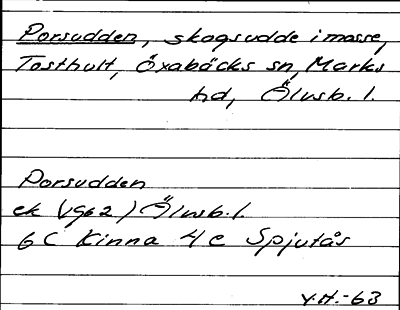 Porsudden, skogsudde i masse,
Tosthult, Öxabäcks sn, Marks
hd, Älvsb. l.
Porsudden
ek (1962) Älvsb. l.
6 C Kinna 4 e Spjutås
Y.H.-63